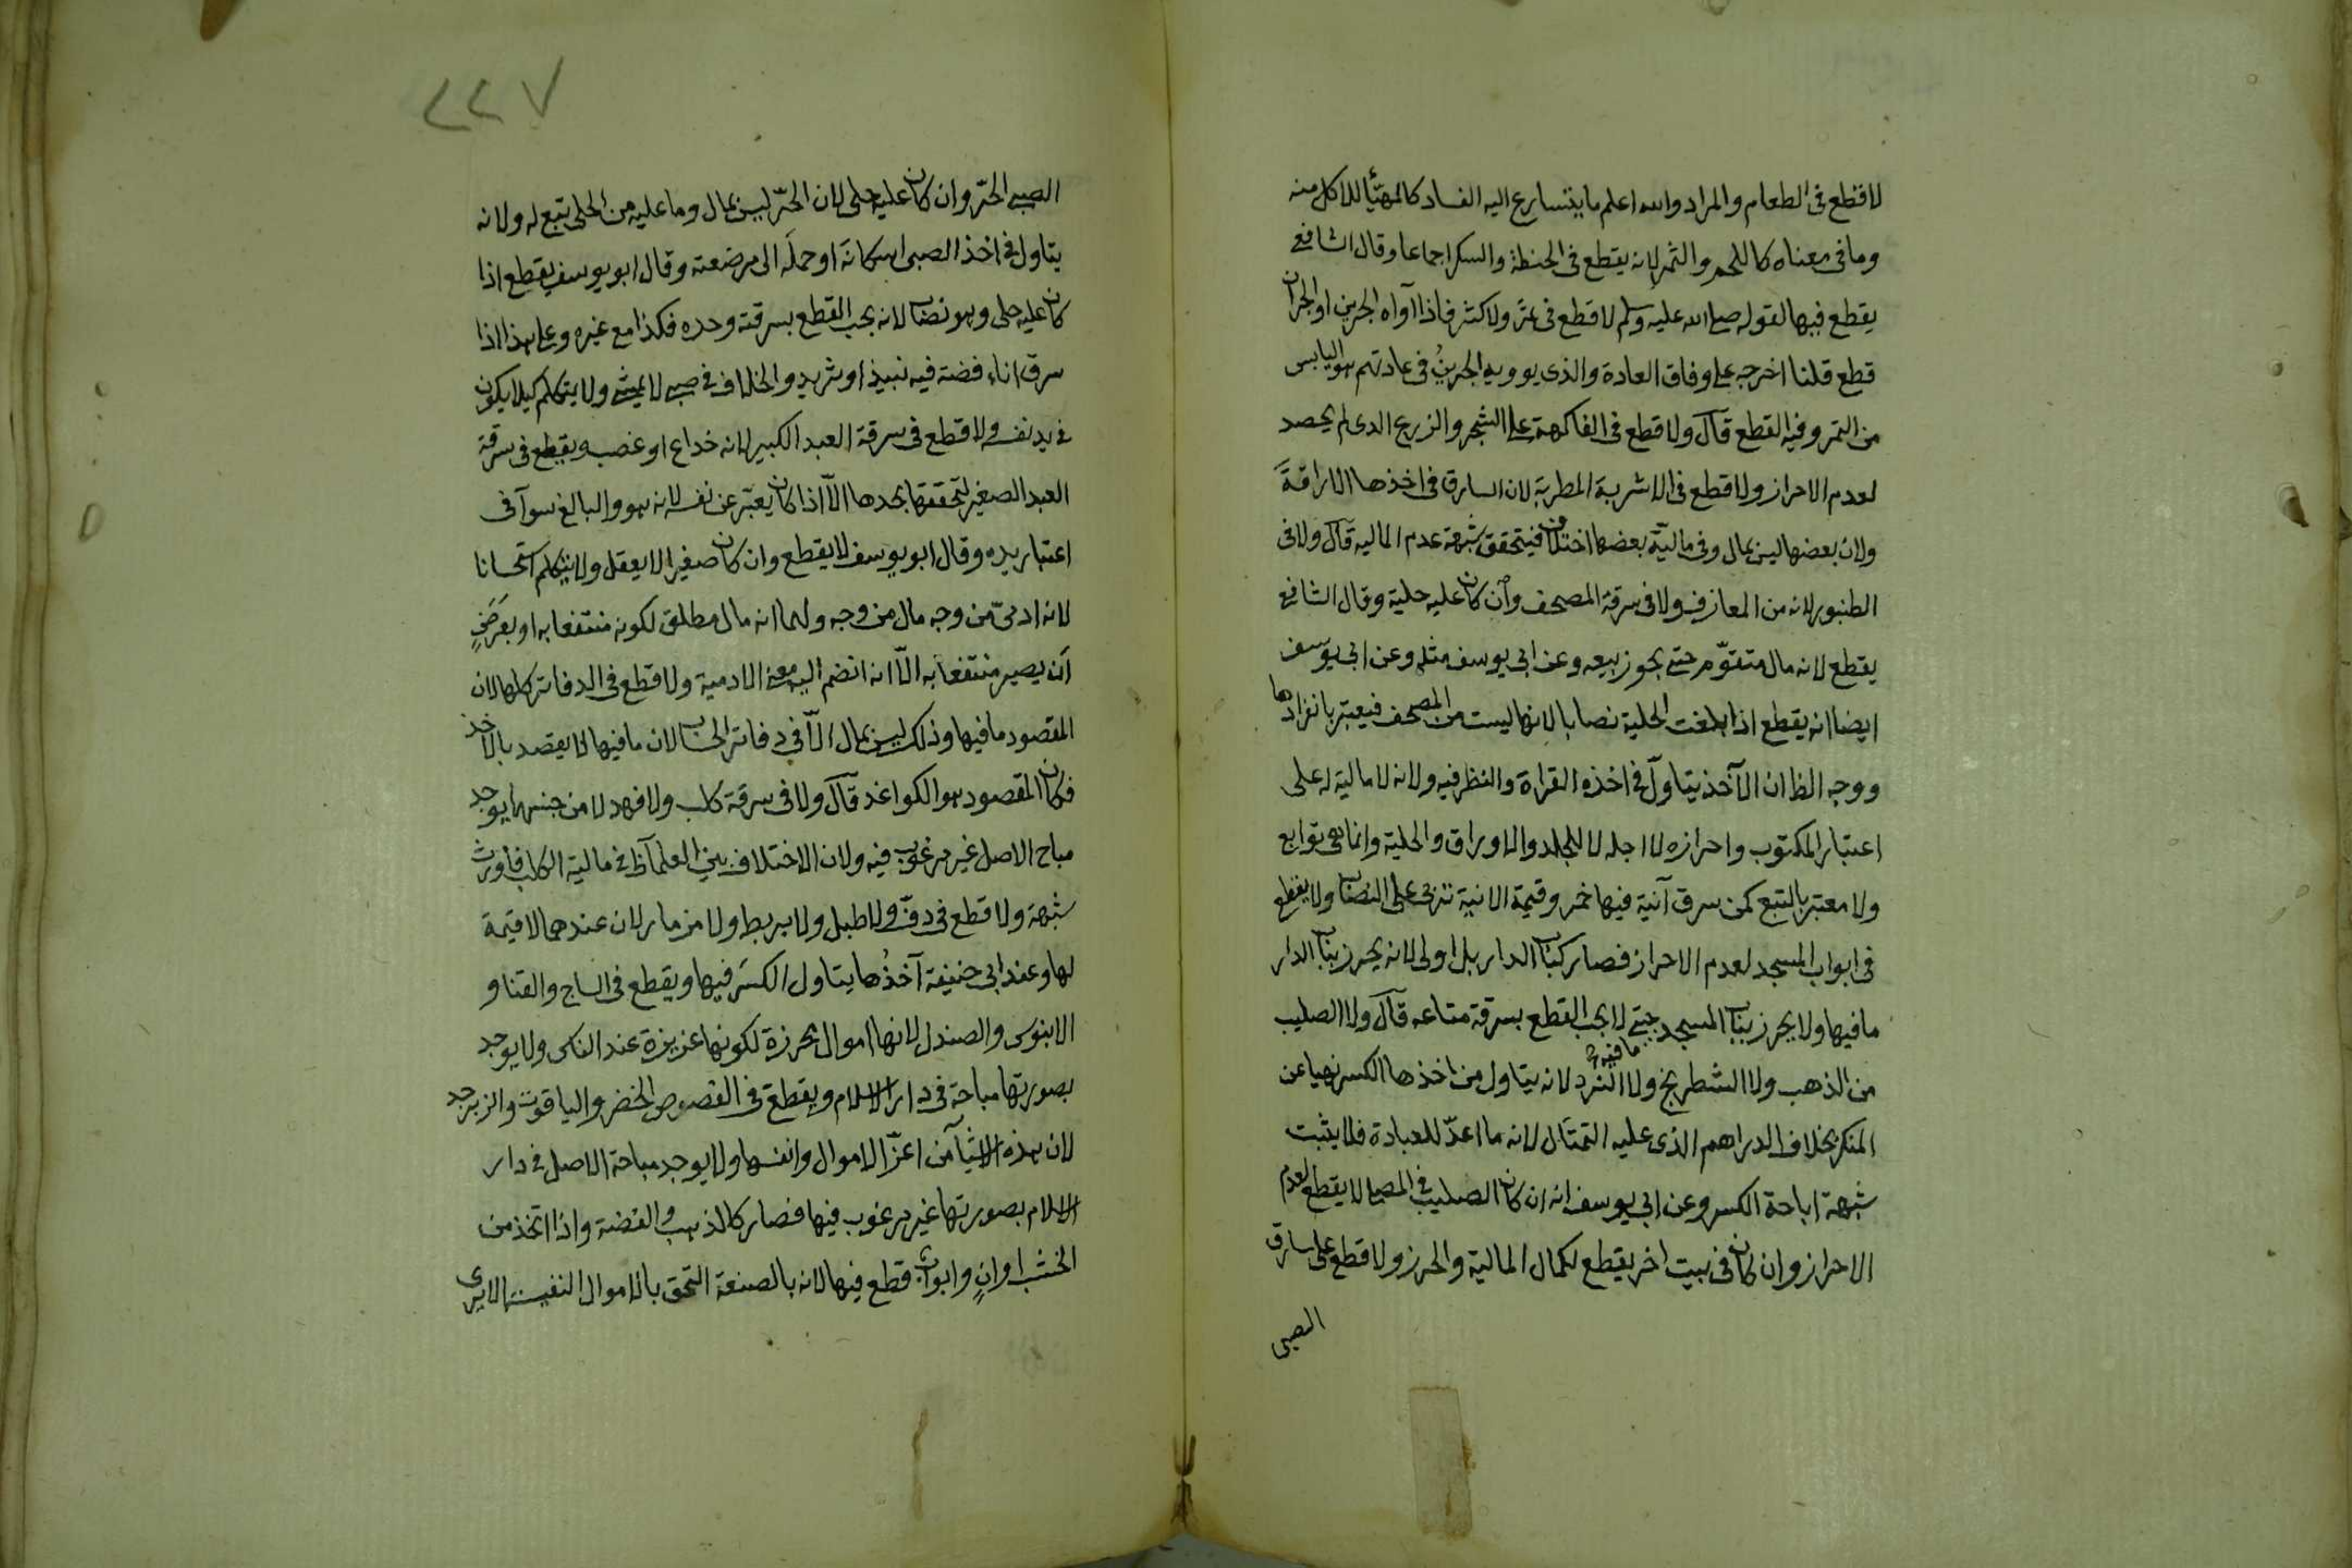 لا قطع فى الطعام والمراد والله اعلم ما يتسارع اليه الفساد كالمهيّأ للاكل منه
وما فى معناه كاللحم والثمر لانه يقطع فى الحنطة والسكر اجماعا وقال الشافعى
يقطع فيها لقوله صلى الله عليه وسلم لا قطع فى ثمر ولا كثر فاذا آواه الجرين او الجران
قطع قلنا اخرجه على وفاق العادة والذى يوويه الجرينُ فى عادتهم هو اليابس
من الثمر وفيه القطع قال ولا قطع فى الفاكهة على الشجر والزرع الدى لم يحصد
لعدم الاحراز ولا قطع فى الاشربة المطربة لان السارق فى اخذها الاراقةَ
ولان بعضها ليس بمال وفى ماليّة بعضها اختلاف فيتحقق شبهة عدم الماليه قال ولا فى
الطنبور لانه من المعازف ولا فى سرقة المصحف وان كان عليه حلية وقال الشافعى
يقطع لانه مال متقوّم حتى يجوز بيعه وعن ابى يوسف مثله وعن ابى يوسف
ايضا انه يقطع اذا بلغت الحلية نصابا لانها ليست من المصحف فيعتبر بانفرادها
ووجه الظ ان الآخذ يتاول فى اخذه القراة والنظر فيه ولانه لا مالية له على
اعتبار المكتوب واحرازه لا اجله لا للجلد والاوراق والحلية وانما هى توابع
ولا معتبر بالتبع كمن سرق آنية فيها خمر وقيمة الانية تربى على النصاب ولا يقطع
فى ابواب المسجد لعدم الاحراز فصار كباب الدار بل اولى لانه يحرز بباب الدار
ما فيها ولا يحرز بباب المسجد ما فيه حتى لا يجب القطع بسرقة متاعه قال ولا الصليب
من الذهب ولا الشطرنج ولا النرد لانه يتاول من اخذها الكسر نهيا عن
المنكر بخلاف الدراهم الذى عليه التمثال لانه ما اعدّ للعبادة فلا يثبت
شبهة اباحة الكسر وعن ابى يوسف انه ان كان الصليب فى المصلى لا يقطع لعدم
الاحراز وان كان فى بيت اخر يقطع لكمال المالية والحرز ولا قطع على سارق
الصبى
٢٢٧
الصبى الحرّ وان كان عليه حلى لان الحرّ ليس بمال وما عليه من الحلى تبع له ولانه
يتاول فى اخذ الصبى اسكاته او حمله الى مرضعته وقال ابو يوسف يقطع اذا
كان عليه حلى وهو نصاب لانه يجب القطع بسرقته وحده فكذا مع غيره وعلى هذا اذا
سرق اناء فضة فيه نبيذ او ثريد والخلاف فى صبى لا يمشى ولا يتكلم كيلا يكون
فى يد نفسه ولا قطع فى سرقة العبد الكبير لانه خداع او غصب ويقطع فى سرقة
العبد الصغير لتحققها بحدها الّا اذا كان يعبّر عن نفسه لانه هو والبالغ سوآ فى
اعتبار يده وقال ابو يوسف لا يقطع وان كان صغيرا لا يعقل ولا يتكلم استحسانا
لانه ادمىّ من وجه مال من وجه ولهما انه مال مطلق لكونه منتفعا به او بعَرَضِ
ان يصير منتفعا به الّا انه انضم اليه معنى الادمية ولا قطع فى الدفاتر كلها لان
المقصود ما فيها وذلك ليس بمال الّا فى دفاتر الحساب لان ما فيها لا يقصد بالاخذ
فكان المقصود هو الكواغد قال ولا فى سرقة كلب ولا فهد لا من جنسها يوجد
مباح الاصل غير مرغوب فيه ولان الاختلاف بين العلمآ ظ فى مالية الكلب فاورث
شبهة ولا قطع فى دفّ ولا طبل ولا بربط ولا مزمار لان عندهما لا قيمة
لها وعند ابى حنيفة آخذُها يتاول الكسَر فيها ويقطع فى الساج والقنا و
الابنوس والصندل لانها اموال محرزة لكونها عزيزة عند الناس ولا يوجد
بصورتها مباحة فى دار الاسلام ويقطع فى الفصوص الخضر والياقوت والزبرجد
لان هذه الاشيآ من اعزّ الاموال وانفسها ولا يوجد مباحة الاصل فى دار
الاسلام بصورتها غير مرغوب فيها فصار كالذهب والفضة واذا اتخذ من
الخشب اوانٍ وابواب قطع فيها لانه بالصنعة التحق بالاموال النفيسة الا يرى